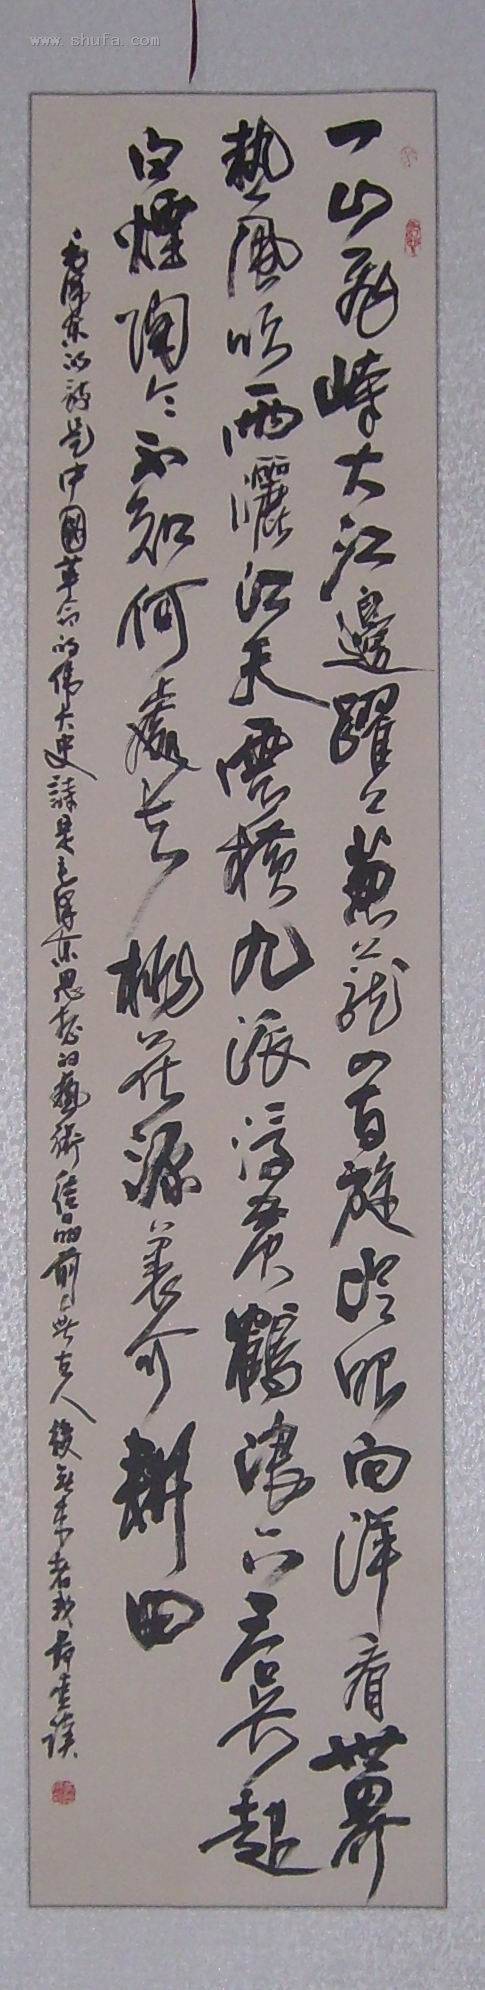 www.shufa.com
一山飛峙大江邊躍上葱蘢四百旋冷眼向洋看世界
熱風吹雨灑江天雲橫九派浮黄鶴浪下三吴起
白煙陶令不知何處去桃花源裏可耕田
毛澤東的詩是中國革命的伟大史詩是毛澤東思想的藝術結晶前無古人後無來者我最喜讀